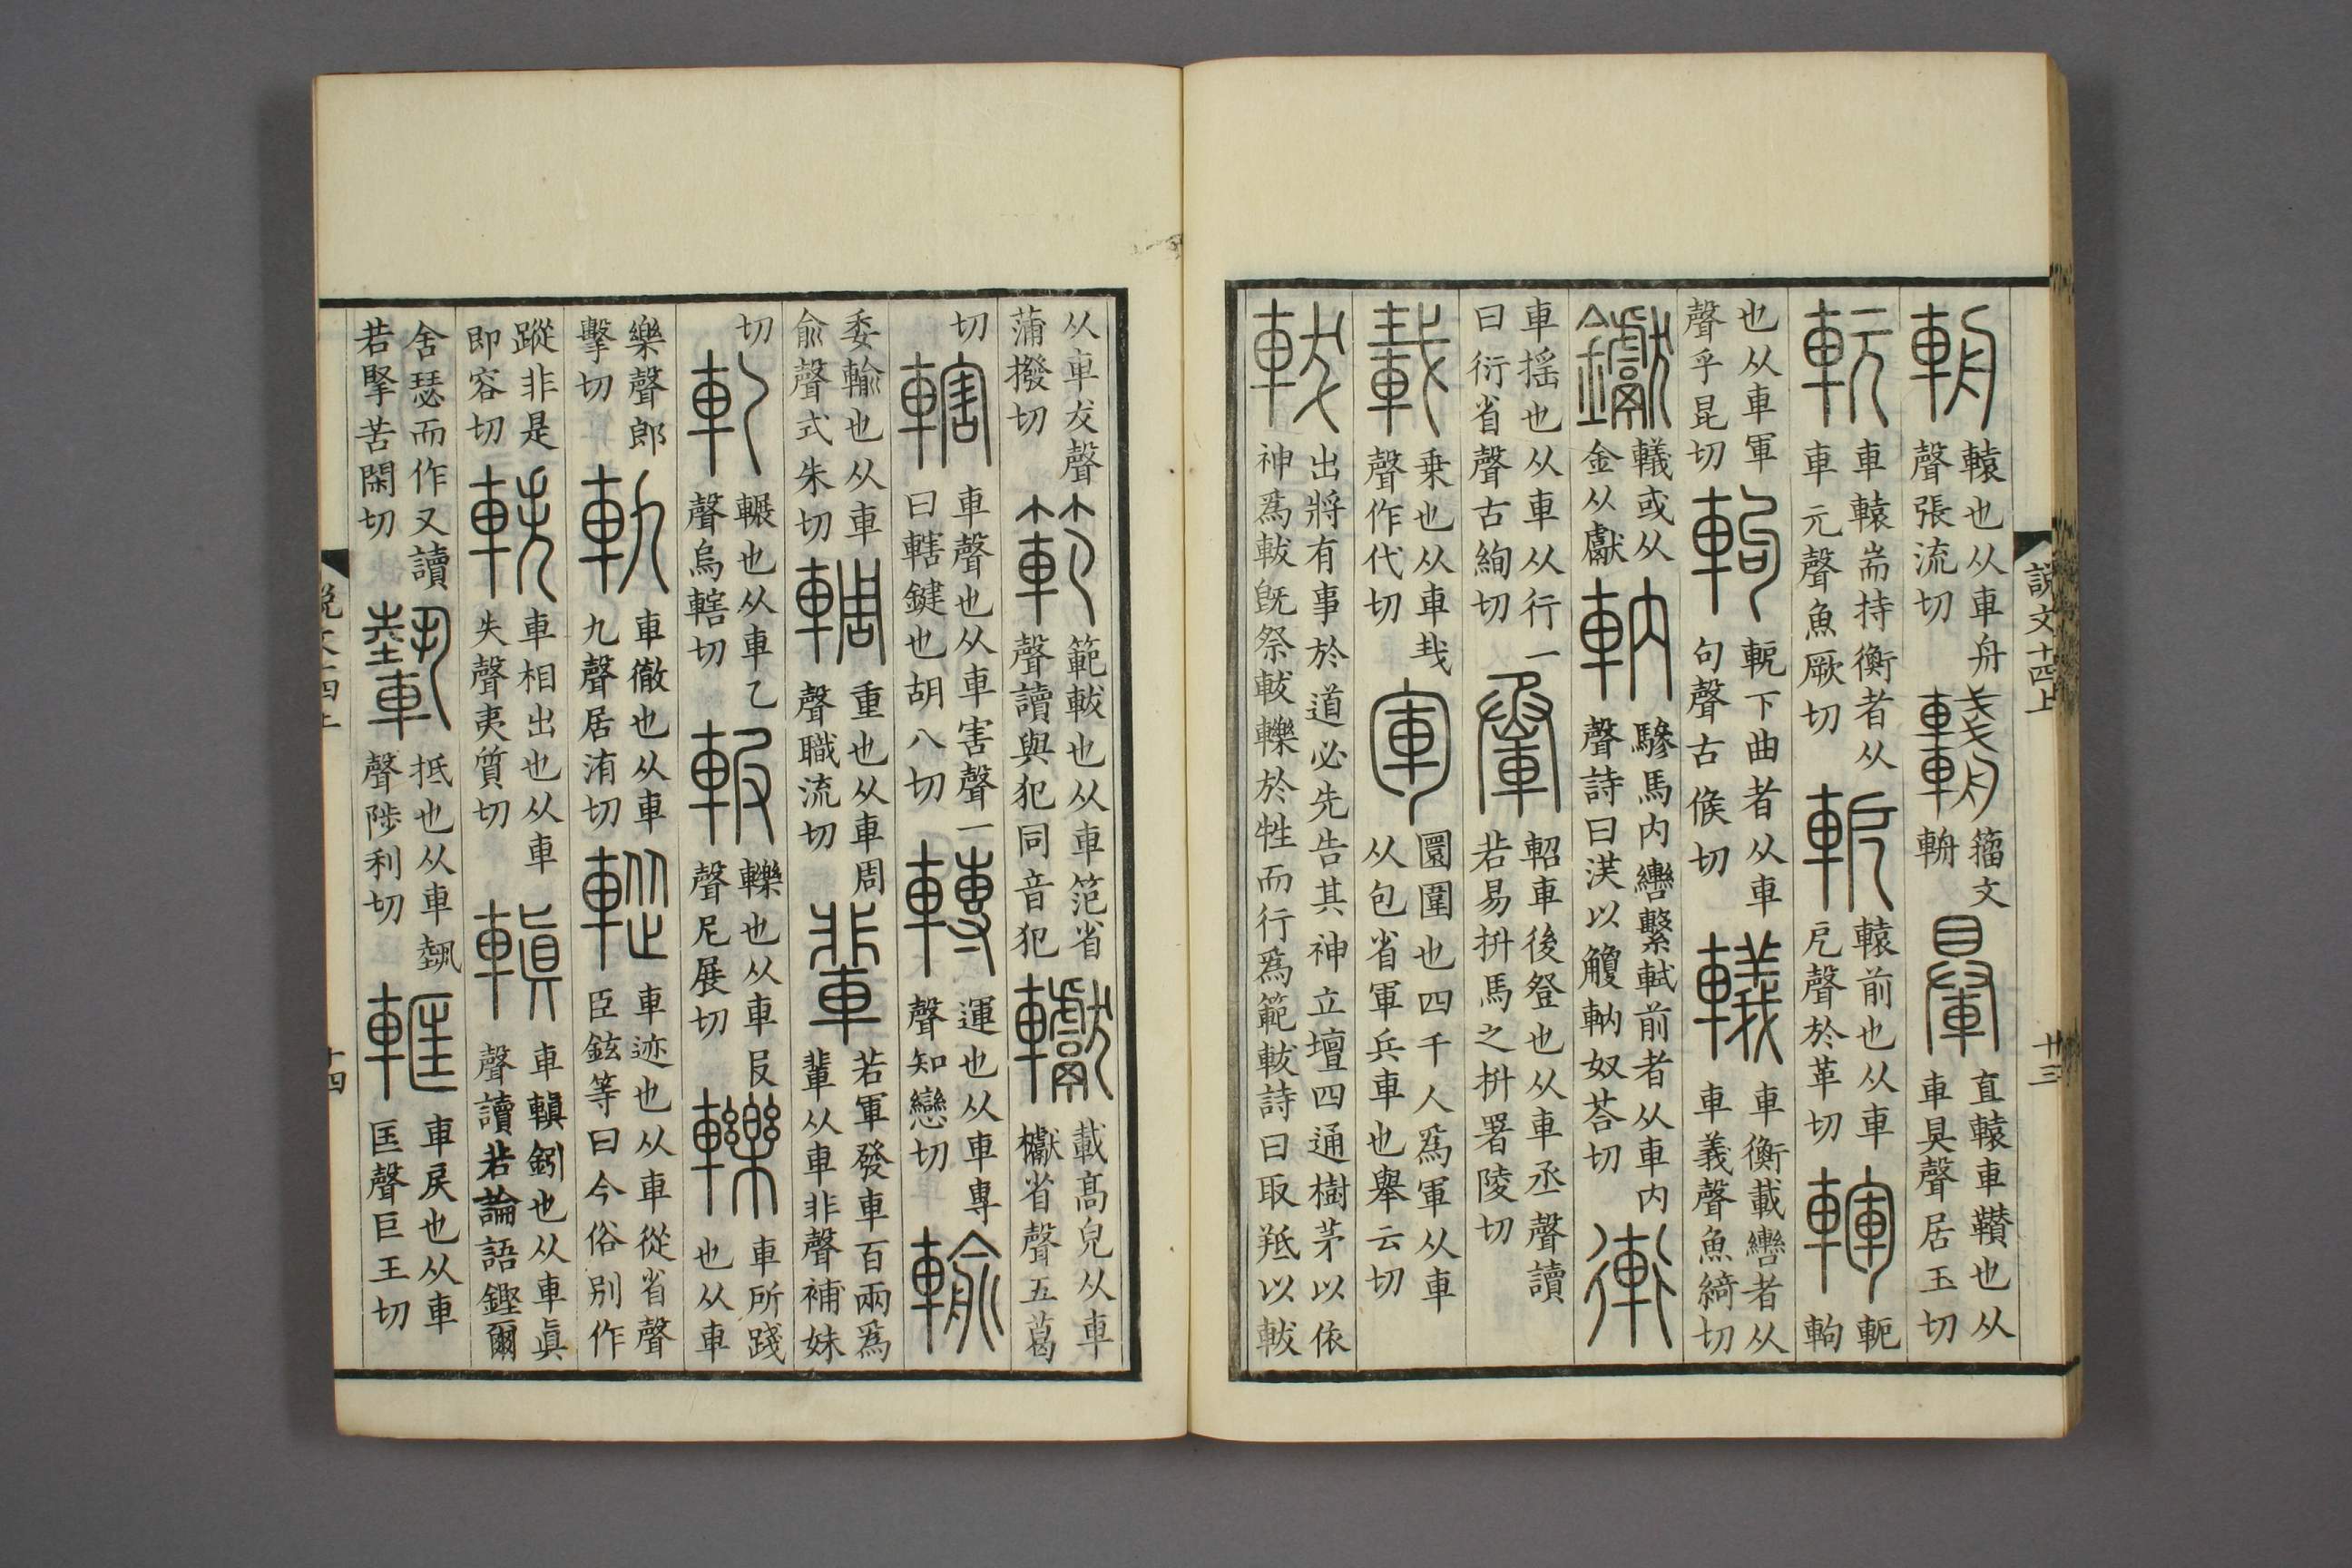 説文十四上 廿三
輈轅也从車舟聲張流切籀文輈直轅車也从車具聲居玉切
軏車轅耑持衡者从車元聲魚厥切軶轅前也从車戹聲於革切軶軥
也从車軍聲乎昆切軥軶下曲者从車句聲古𠊱切轙車衡載轡者从車義聲魚綺切
钀轙或从金从獻軜驂馬内轡繫軾前者从車内聲詩曰渼以觼軜奴荅切𧗪
車揺也从車从行一曰衍省聲古絢切軺車後登也从車丞聲讀若易抍馬之抍署陵切
載乗也从車𢦏聲作代切軍圜圍也四千人爲軍从車从包省軍兵車也舉云切
軷出將有事於道必先告其神立壇四通樹茅以依神爲軷旣祭軷轢於牲而行爲範軷詩曰取羝以軷
从車犮聲蒲撥切範範軷也从車笵省聲讀與犯同音犯𨏿載高皃从車𣡌省聲五葛
切轄車聲也从車害聲一曰轄鍵也胡八切轉運也从車專聲知戀切輸
委輸也从車俞聲式朱切輖重也从車周聲職流切輩若軍發車百兩爲輩从車非聲補妹
切軋輾也从車乙聲烏轄切𨋚轢也从車𠬝聲尼展切轢車所踐也从車
樂聲郎擊切軌車徹也从車九聲居洧切䡮車迹也从車從省聲臣鉉等曰今俗别作
蹤非是即容切軼車相出也从車失聲夷質切䡩車䡩釰也从車眞聲讀若論語鏗爾
舍瑟而作又讀若掔苦閑切𨎌抵也从車埶聲陟利切軭車戾也从車匡聲巨王切
説文十四上 十四